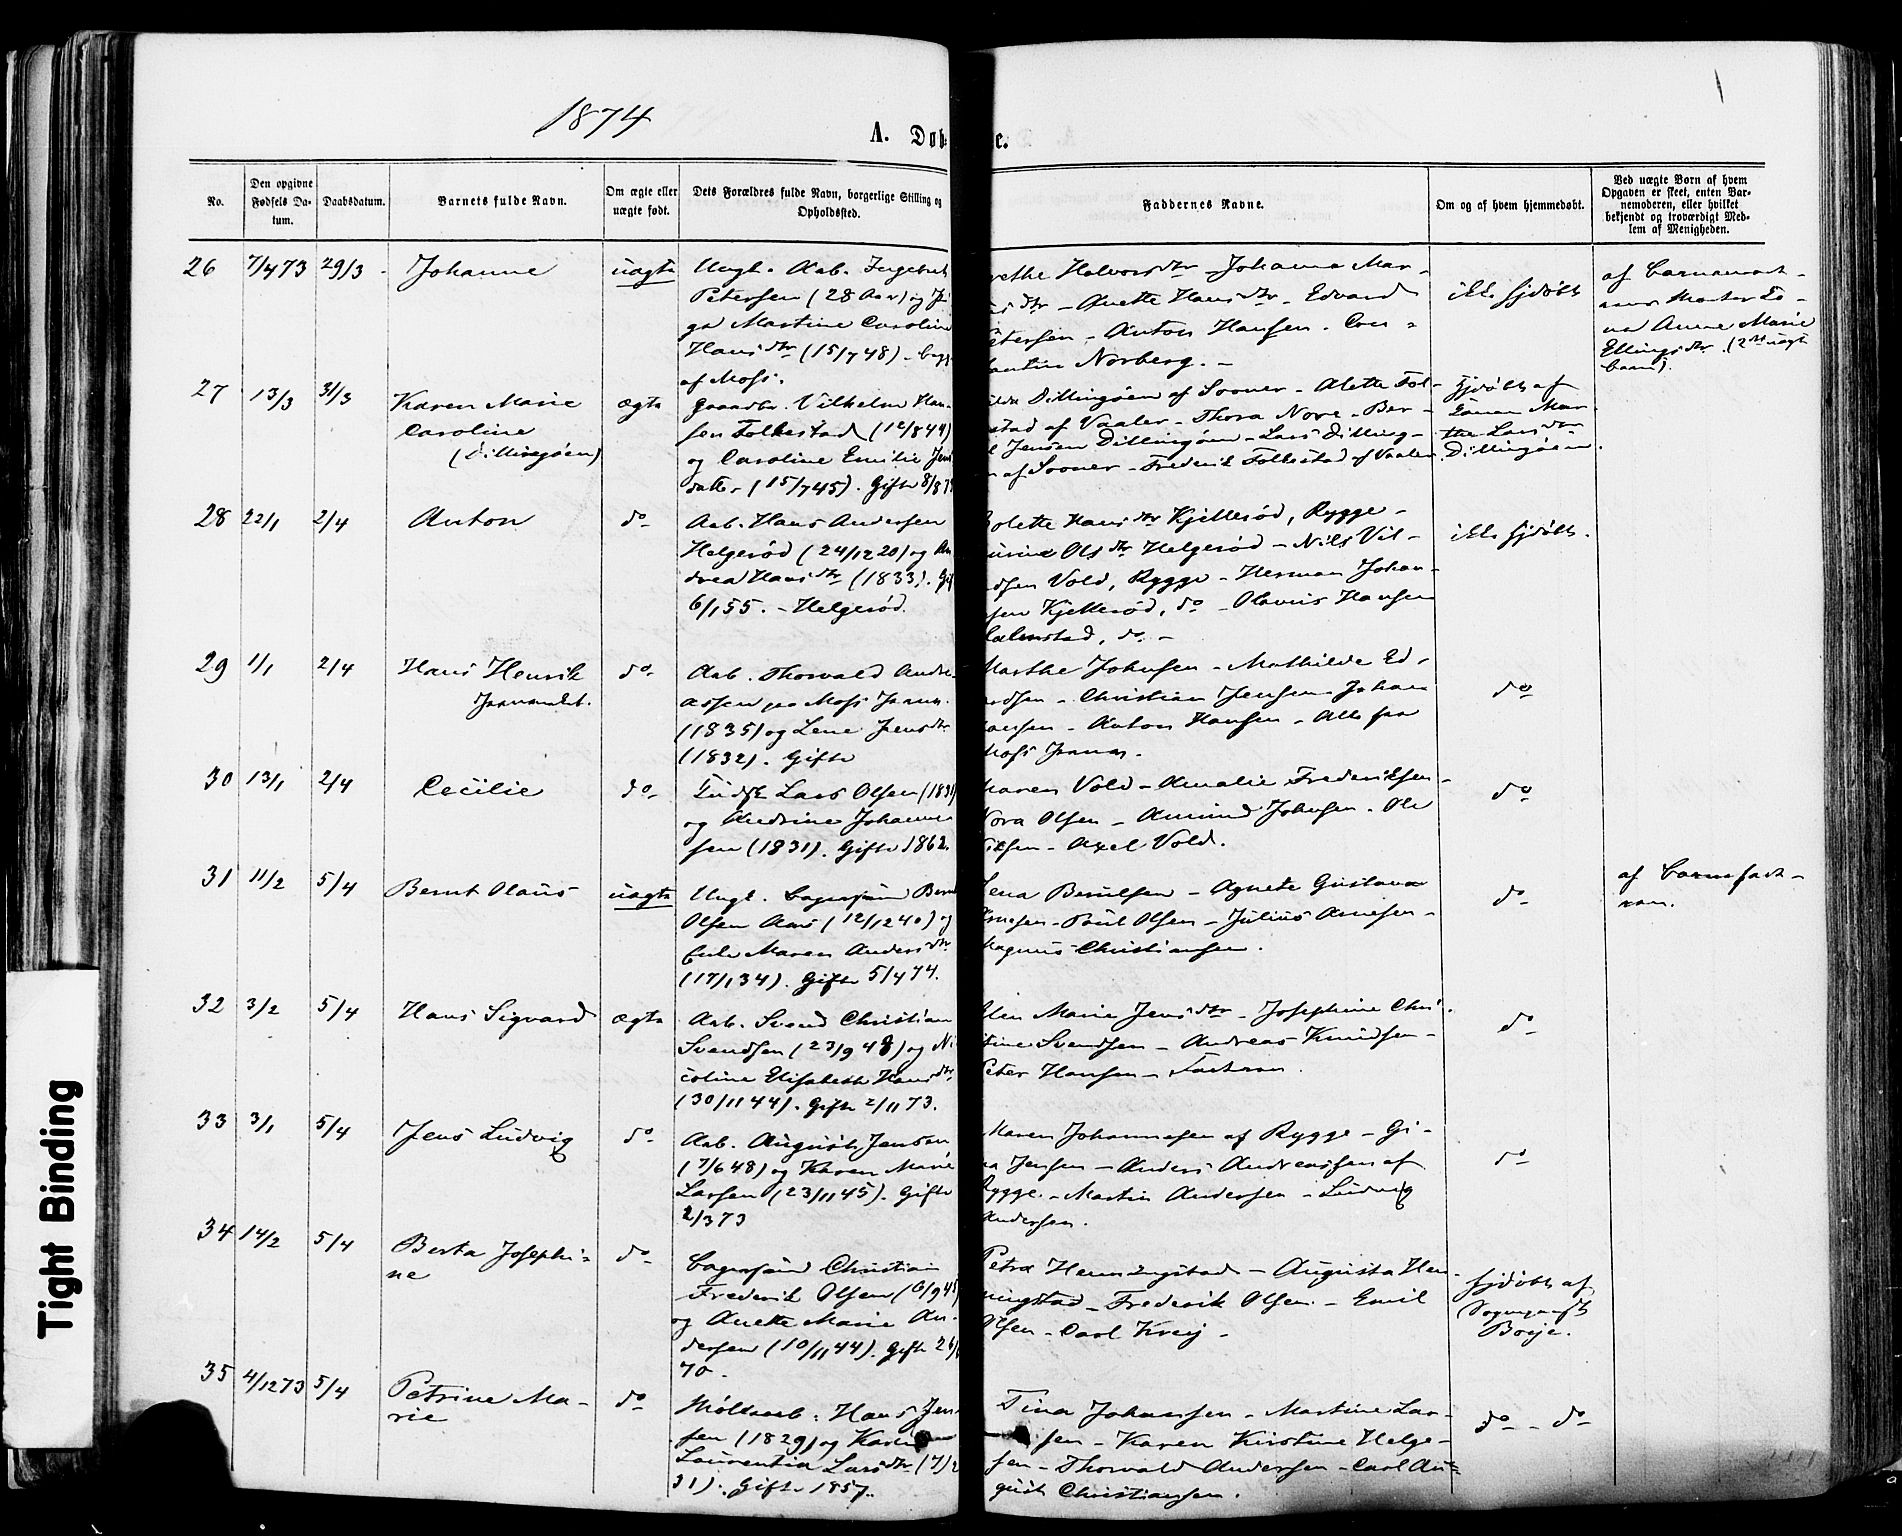 1874
A. Døb
e.
No.
Den opgivne Fødsels Datum.
Daabsdatum.
Barnets fulde Navn.
Om ægte eller uægte født.
Dets Forældres fulde Navn, borgerlige Stilling og Opholdssted.
Faddernes Navne.
Om og af hvem hjemmedøbt.
Ved uægte Born af hvem Opgaven er skeet, enten Barnemoderen, eller hvilket bekjendt og troværdigt Medlem af Menigheden.
26 7/4 73 29/3 Johanne uægte
Ungk. Aab.
Petersen (28 Aar) og
Martine Caroline
Hansdtr (15/7 48)
af Moss.
Halvorsdtr - Johanna Mar-
dtr - Anette Hansdtr - Edvard
Petersen - Anton Hansen
Norberg. -
ikke hjdøbt
af
Anne Marie
Ellingsdtr.
27 13/3 31/3 Karen Marie
Caroline
(Dillingøen)
ægte
Gaardbr. Vilhelm Han-
sen Folkestad (12/8 44)
og Caroline Emilie Jens
datter (15/7 45). Gift 8/8
Dillingøen af Sooner - Alette Fol-
stad af Vaaler - Thora Nore - Ber-
Jensen Dillingøen - Lars Dilling-
af Sooner - Frederik Folkestad af Vaaler.
hjdøbt af
Mar-
the Larsdtr
Dillingøen.
28 22/1 2/4 Anton do
Aab. Hans Andersen
Helgerød (24/12 20) og An
drea Hansdtr (1833). Gif
6/1 55. - Helgerød.
Bolette Hansdtr Kjellerød, Rygge -
Olsdtr Helgerød - Nils Vil-
Vold, Rygge - Herman Johan-
sen Kjellerød, do - Olavus Hansen
, do -
ikke hjdøbt.
29 1/1 2/4 Hans Henrik
do
Aab. Thorvald Andre-
assen paa Moss
(1835) og Lene Jensdtr
(1832). Gift
Marthe Johnsen - Mathilde Ed-
- Christian Jensen - Johan
- Anton Hansen - Alle fra
Moss
do
30 13/1 2/4 Cecilie do
Lars Olsen
og Andrine Johanne-
sen (1831). Gift 1862.
Maren Vold - Amalie Frederiksen -
Nora Olsen - Amund Johnsen - Ole
- Axel Vold.
do
31 11/2 5/4 Bernt Olaus uægte
Ungk. Bagersvend Bernt
Olsen Aas (12/12 40) og
Maren Andersdtr
(17/1 34). Gift 5/4 74.
Lena Berntsen - Agnete Gustava
Arnesen - Poul Olsen - Julius Arnesen -
Magnus Christiansen.
do
af Barnefad-
eren.
32 3/2 5/4 Hans Sigvard ægte
Aab. Svend Christian
Svendsen (23/9 48) og Ni
coline Elisabeth Hansdtr
(30/11 44). Gift 2/11 73.
Marie Jensdtr - Josephine Chri-
stine Svendsen - Andreas Knudsen -
Peter Hansen - Faderen.
do
33 3/1 5/4 Jens Ludvig do
Aab. August Jensen
(7/6 48) og Karen Marie
Larsen (23/11 45). Gift
2/3 73
Maren Johannesen af Rygge - Gi-
na Jensen - Anders Andreassen af
Rygge. - Martin Andersen - Ludvig
Andersen.
do
34 14/2 5/4 Berta Josephi-
ne
do
Bagersvend Christian
Frederik Olsen (6/9 45)
og Anette Marie An-
dersen (10/11 44). Gift 26/
70.
Petra Henningstad - Augusta Hen-
ningstad - Frederik Olsen. - Emil
Olsen - Carl Kreij -
hjdøbt af
Sogneprest
Boije.
35 4/12 73 5/4 Petrine Ma-
rie
do
Hans Jen-
sen (1829) og Karen
Laurentia Larsdtr (7/2
31). Gift 1857.
Tina Johansen - Martine Lar-
sen - Karen Kirstine Helge-
sen - Thorvald Andersen - Carl Au-
gust Christiansen.
do - do
Tight Binding